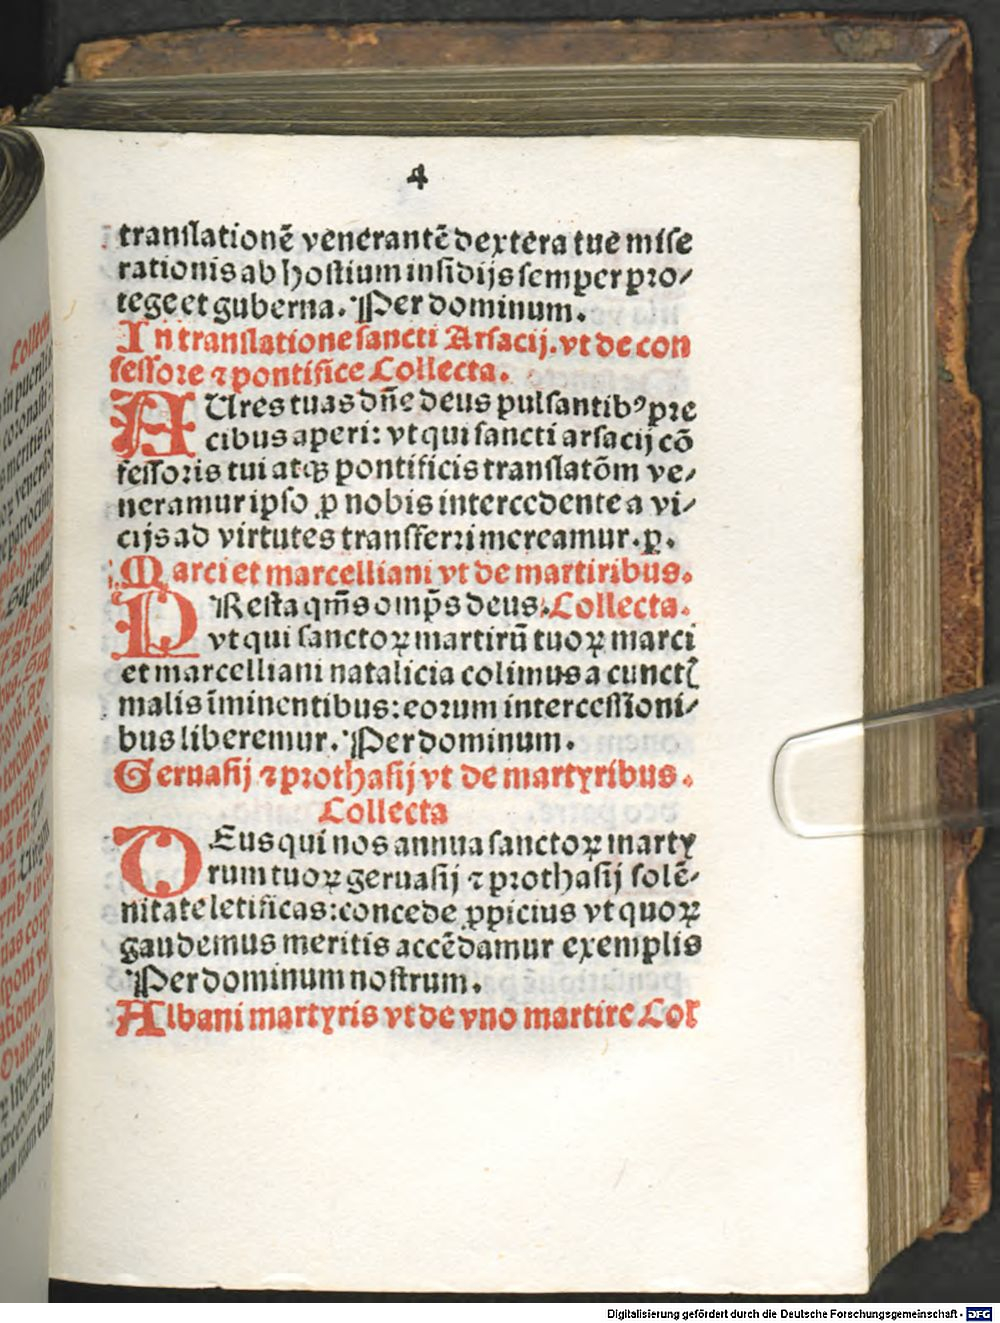 4
translationē venerantē dextera tue mise
rationis ab hostium insidijs semper pro⸗
tege et guberna. Per dominum.
In translatione sancti Arsacij. vt de con
fessore ⁊ pontifice Collecta.
AUres tuas dn̄e deus pulsantibꝰ pre
cibus aperi: vt qui sancti arsacij cō
fessoris tui atqꝫ pontificis translatōm ve⸗
neramur ipso ꝓ nobis intercedente a vi⸗
cijs ad virtutes transferri mereamur. ꝑ.
Marci et marcelliani vt de martiribus.
PResta qm̄s omp̄s deus. Collecta.
vt qui sanctoꝝ martirū tuoꝝ marci
et marcelliani natalicia colimus a cunctꝭ
malis īminentibus: eorum intercessioni⸗
bus liberemur. Per dominum.
Geruasij ⁊ prothasij vt de martyribus.
Collecta
DEus qui nos annua sanctoꝝ marty
rum tuoꝝ geruasij ⁊ prothasij solē⸗
nitate letificas: concede ꝓpicius vt quoꝝ
gaudemus meritis accēdamur exemplis
Per dominum nostrum.
Albani martyris vt de vno martire Col̄
Digitalisierung gefördert durch die Deutsche Forschungsgemeinschaft - DFG